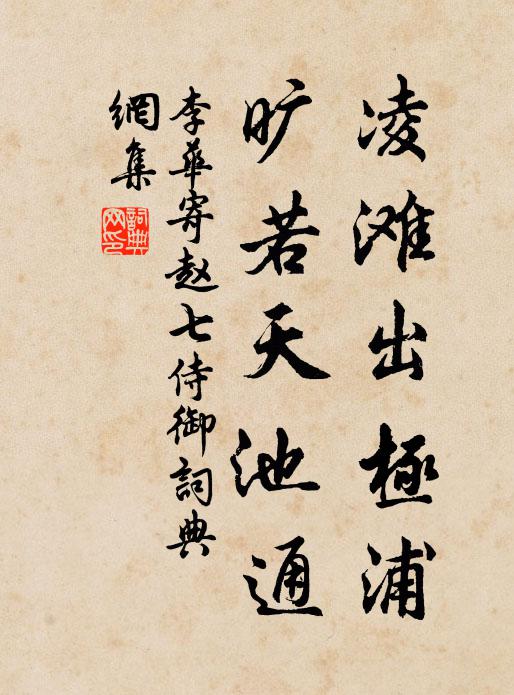 凌滩出極浦
旷若天池通
李華寄赵七侍御詞典
網集
詞典
网印